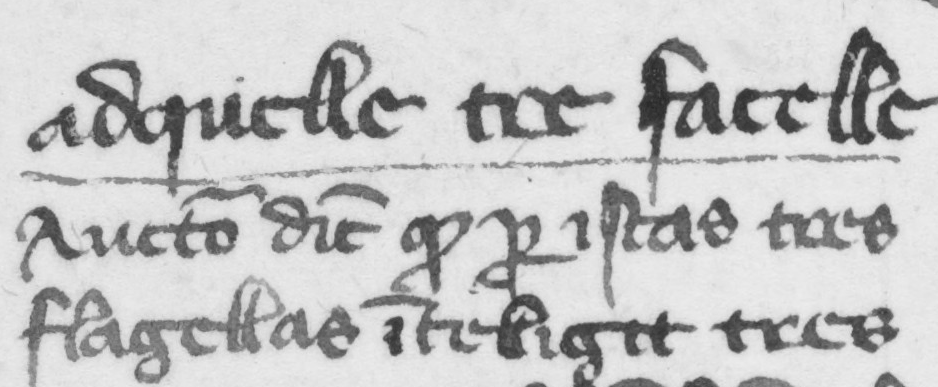 adquelle tre facelle
Auctō dic̄ ꝙ ꝑ istas tres
flagellas ītelligit tres